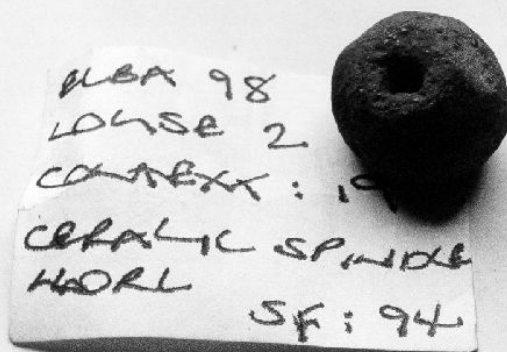 ELBA 98
HOUSE 2
CONTEXT : 19
CERAMIC SPINDLE
WHORL
SF : 94